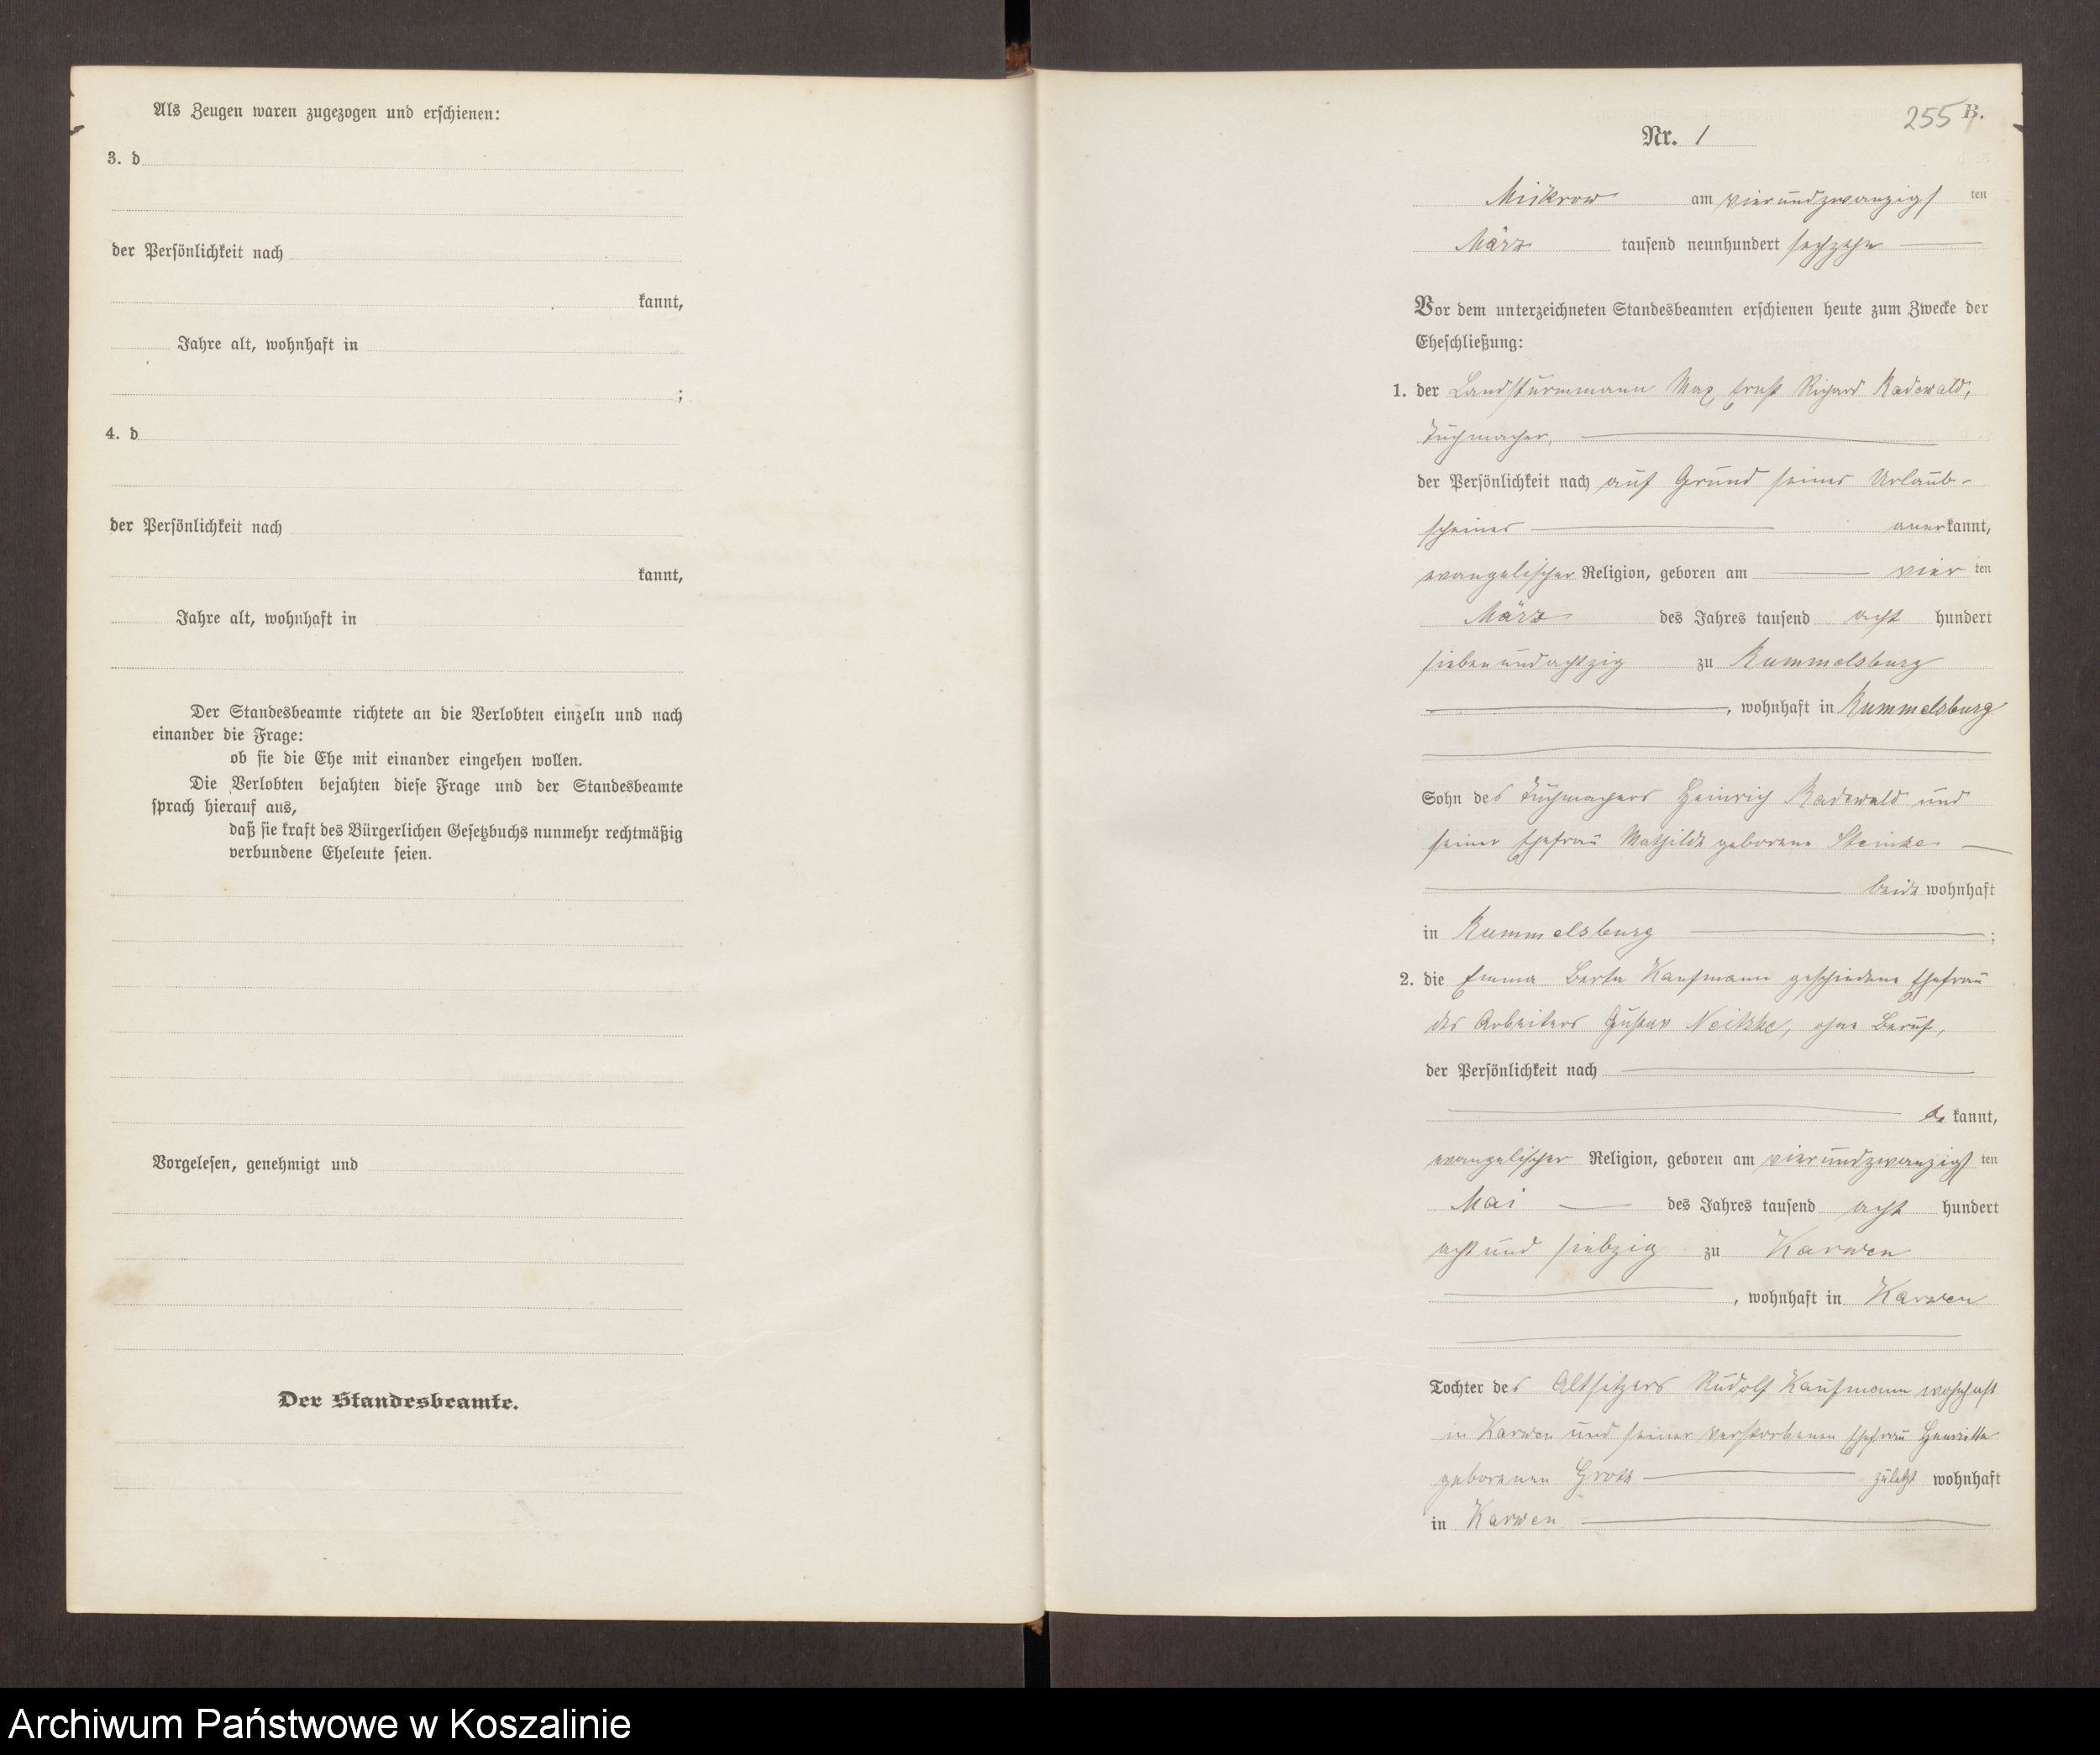 Als Zeugen waren zugezogen und erschienen:
3. d
der Persönlichkeit nach
kannt,
Jahre alt, wohnhaft in
;
4. d
der Persönlichkeit nach
kannt,
Jahre alt, wohnhaft in
Der Standesbeamte richtete an die Verlobten einzeln und nach
einander die Frage:
ob sie die Ehe mit einander eingehen wollen.
Die Verlobten bejahten diese Frage und der Standesbeamte
sprach hierauf aus,
daß sie kraft des Bürgerlichen Gesetzbuchs nunmehr rechtmäßig
verbundene Eheleute seien.
Vorgelesen, genehmigt und
Der Standesbeamte.
255 B.
Nr. 1
Mikrow am vierundzwanzigsten
März tausend neunhundert sechzehn
Vor dem unterzeichneten Standesbeamten erschienen heute zum Zwecke der
Eheschließung:
1. der Landsturmmann Max Ernst Richard Radewald,
Tuchmacher,
der Persönlichkeit nach auf Grund seines Urlaub-
scheines anerkannt,
evangelischer Religion, geboren am vierten
März des Jahres tausend acht hundert
siebenundachtzig zu Rummelsburg
, wohnhaft in Rummelsburg
Sohn des Tuchmachers Heinrich Radewald und
seiner Ehefrau Mathilde geborene Steinke
beide wohnhaft
in Rummelsburg ;
2. die Emma Berta Kaufmann geschiedene Ehefrau
des Arbeiters Gustav Neitzke, ohne Beruf,
der Persönlichkeit nach
bekannt,
evangelischer Religion, geboren am vierundzwanzigsten
Mai des Jahres tausend acht hundert
achtundsiebzig zu Karwen
, wohnhaft in Karwen
Tochter des Altsitzers Rudolf Kaufmann wohnhaft
in Karwen und seiner verstorbenen Ehefrau Henriette
geborenen Groth zuletzt wohnhaft
in Karwen
Archiwum Państwowe w Koszalinie